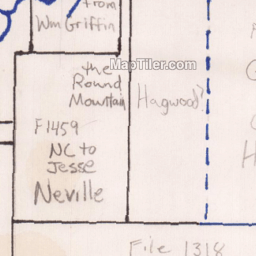 from
Wm Griffin
MapTiler.com
the
Round
Mountain
Hagwood?
F1459
NC to
Jesse
Neville
File 1318